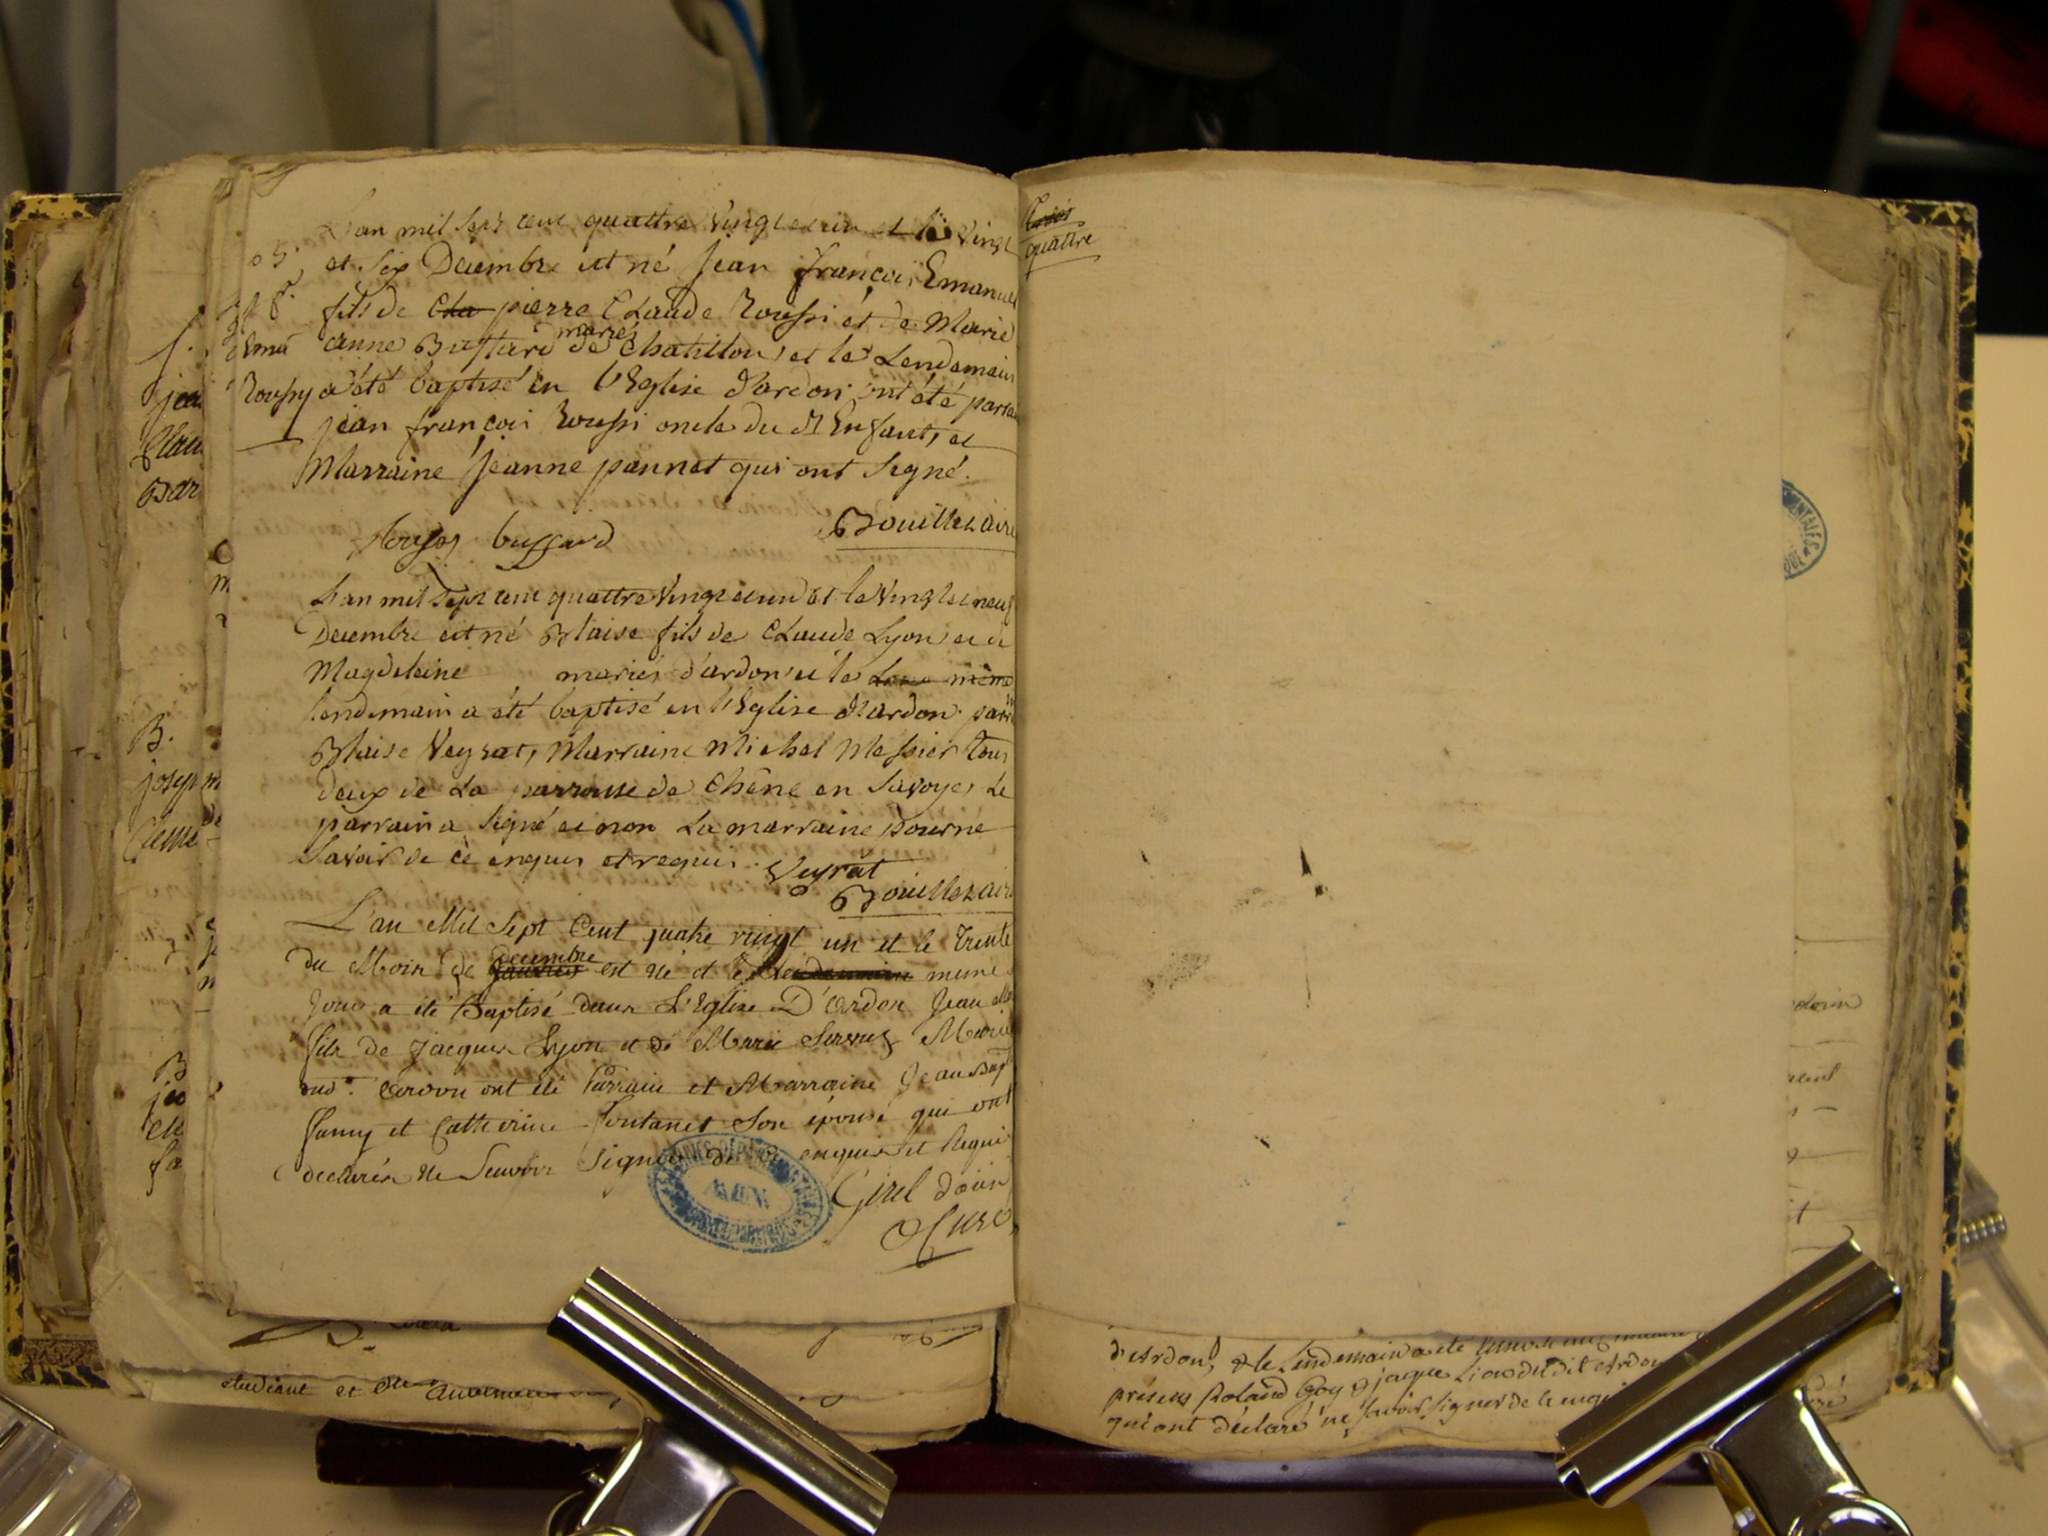 L'an mil sept cent quattre vingt et un et le vingt
et six Decembre est né Jean françois Emanuel
fils de Cla pierre Claude Roussi et de Marie
anne Bussard mariés de Chatillon et le Lendemain
a été baptisé en l'Eglise d'ardon ont été parrain
jean françois Roussi oncle du dt Enfant, et
Marraine Jeanne pannet qui ont signé.
Roussy bussard Bouillet vicaire
L'an mil sept cent quattre vingt et un et le vingt et neuf
Decembre est né Blaise fils de Claude Lyon et de
Magdeleine mariés d'ardon et le même
lendemain a été baptisé en l'Eglise d'ardon parrain
Blaise Veyrat, Marraine Michel Messier tous
deux de La parroisse de Chêne en Savoye, Le
parrain a signé et non La marraine pour ne
Savoir de ce enquis et requis. Veyrat
Bouillet vicaire
L'an Mil Sept Cent quatre vingt un et le Trente
du Mois de decembre est né et le lendemain meme
Jour a été Baptisé dans L'Eglise D'Ardon Jean
fils de Jacques Lyon et de Marie Mariés
aud. Ardon ont été Parrain et Marraine Jean Bapt
famy et Catherine fontanet Son épouse qui ont
declarés ne Scavoir Signer de ce enquis et Requis
Girel d'oin
Curé
Roussy
trois
quattre
etudiant et
d'Ardon, & le Lendemain a été
présens Roland Goy & jacque Lion dudit Ardon
qui ont déclaré ne savoir signer de ce enquis